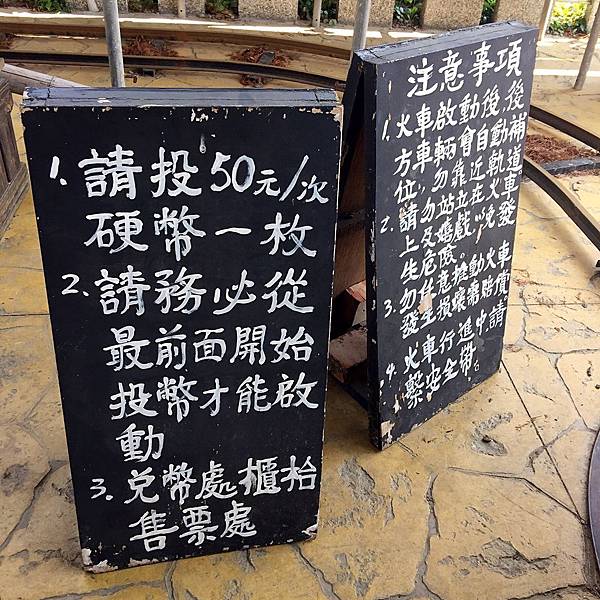 1. 請投50元/次
硬幣一枚
2. 請務必從
最前面開始
投幣才能啟
動
3. 兌幣處櫃枱
售票處
注意事項
1. 火車啟動後後
方車輛會自動補
位,勿靠近軌道。
2. 請勿站立在火車
上及嬉戲以免發
生危險。
3. 勿任意搖動火車
發生損壞需賠償。
4. 火車行進中請
繫安全帶。